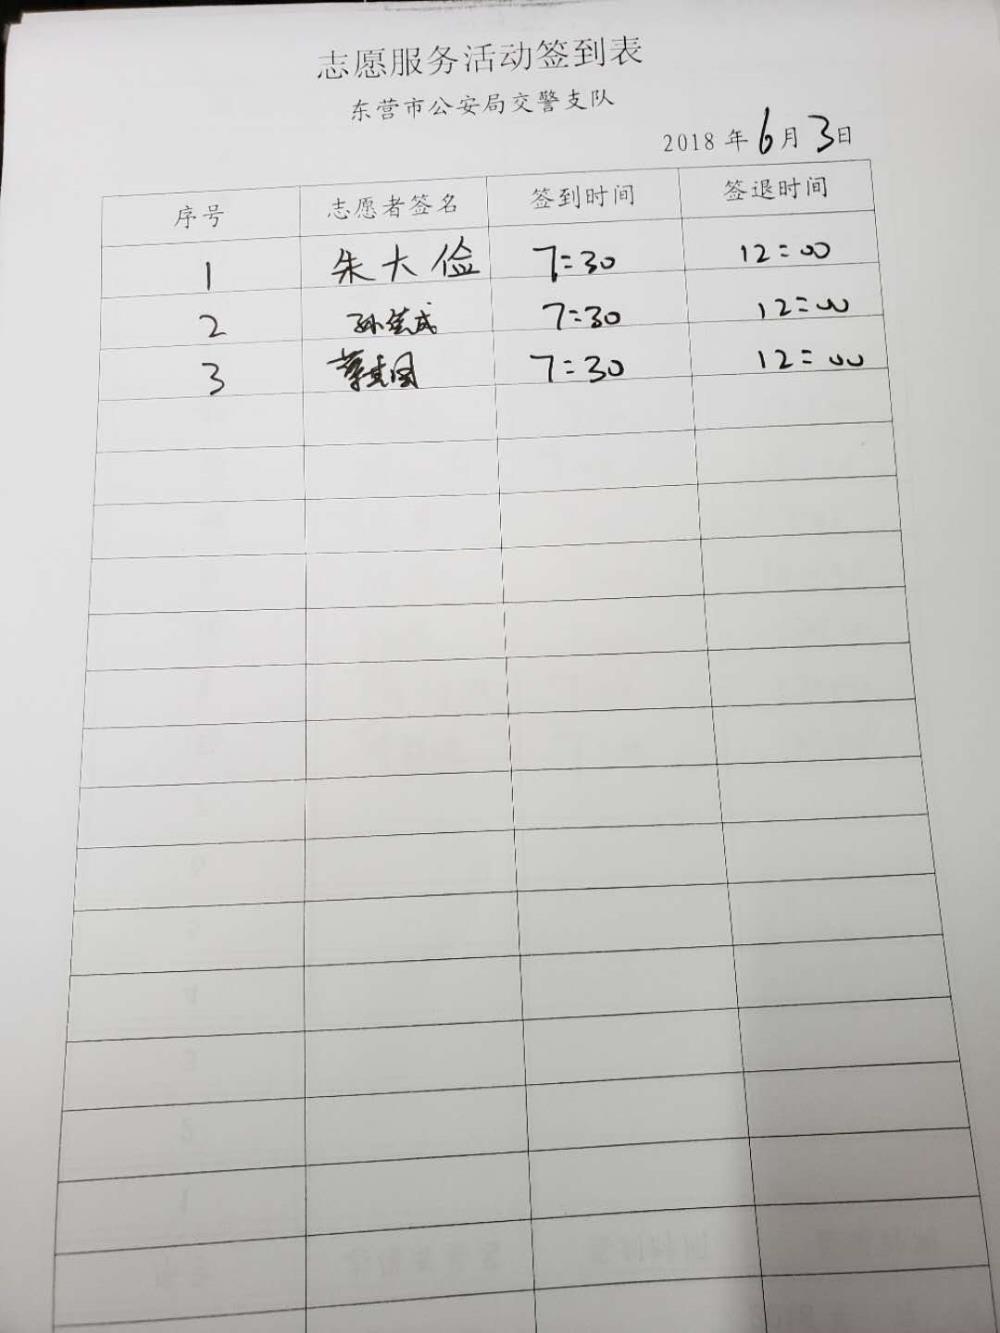 志愿服务活动签到表
东营市公安局交警支队
2018 年 6 月 3 日
序号 志愿者签名 签到时间 签退时间
1 朱大俭 7:30 12:00
2 7:30 12:00
3 7:30 12:00